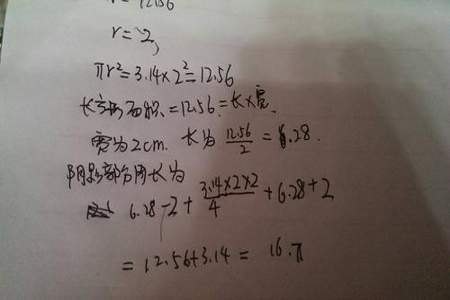 = 12.56
r = 2,
πr²=3.14×2²=12.56
长方形面积=12.56=长×宽.
宽为2cm. 长为 12.56/2 = 6.28.
阴影部分周长为
6.28-2+ 3.14×2×2/4 +6.28+2
=12.56+3.14= 16.π